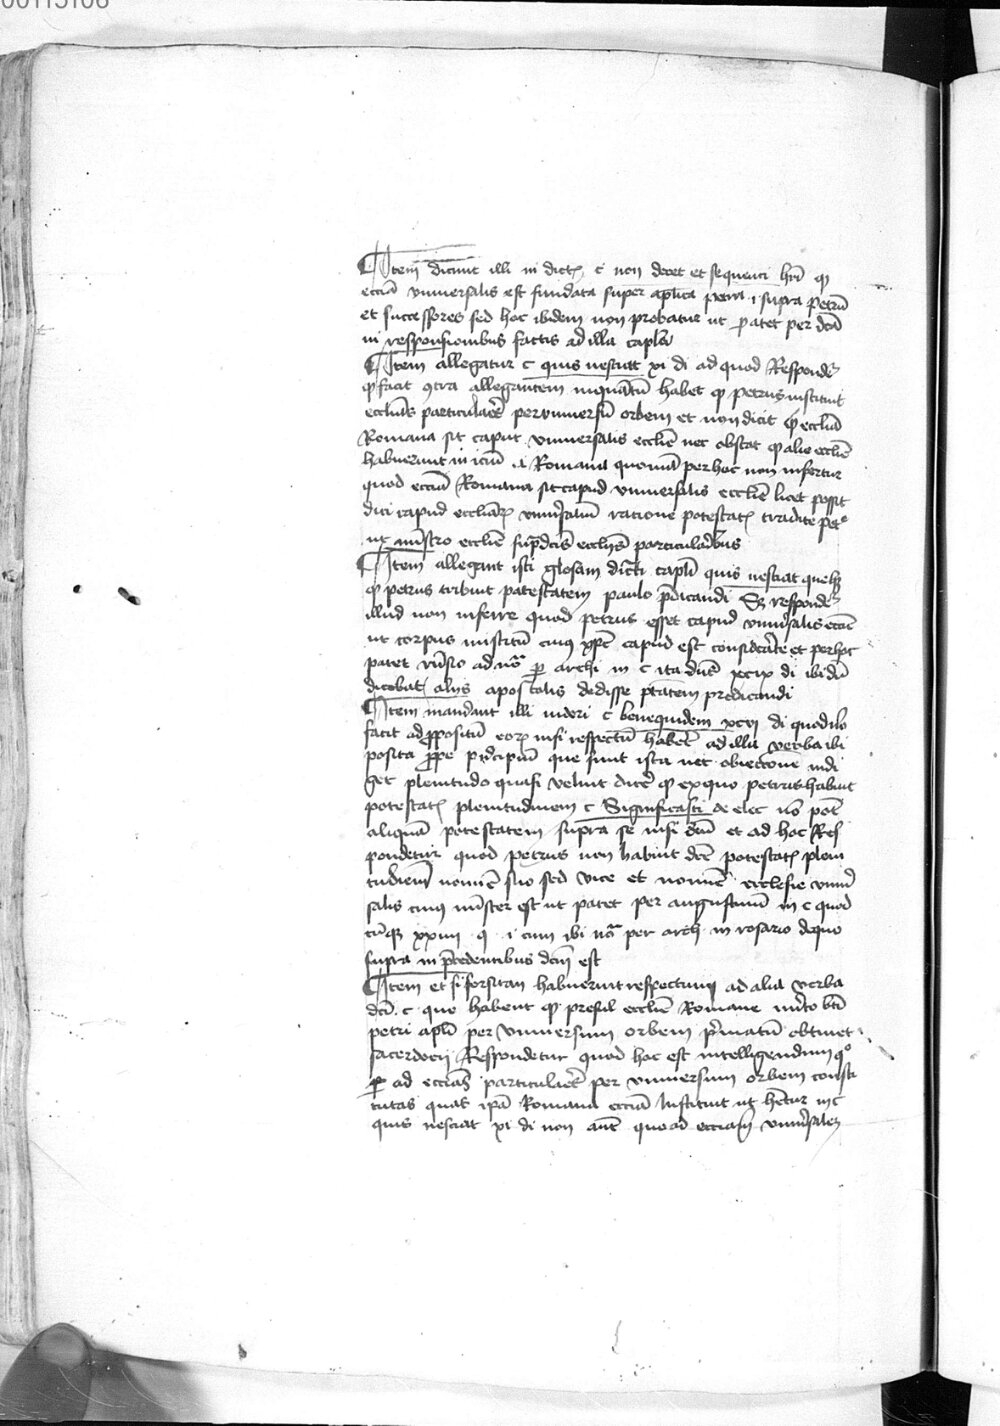 00113106
Item dicunt illi in dict. c non decet et sequenti hri qp
eccia vniuersalis est fundata super aplica petra i supra petru
et successores sed hoc ibidem non probatur ut patet per dca
in responsionibus factis ad illa capla
Item allegatur c quis nesciat xi di ad quod Responde
qp facit contra allegantem inquatu habet qp petrus instituit
eccliās particulares per vniuersu orbem et non dicit qp ecclia
Romana sit caput vniuersalis ecclie nec obstat qp alie ecclie
habuerunt iniciu a Romana quonia per hoc non infertur
quod eccia Romana sit capud vniuersalis ecclie licet possit
dici capud eccliar vniuersaliu ratione potestat tradite pet
ut mistro ecclie supdcis ecclijs particularibus
Item allegant isti glosam dicti capli quis nesciat que
qp petrus tribuit patestatem paulo pdicandi Sz responde
illud non inferre quod petrus esset capud vniuersalis eccie
ut corpus misticu cuius xps capud est considerate et per hoc
patet rnsio ad no p archi in c ita dnc xcix di ibi du
dicebat alijs apostolis dedisse ptatem predicandi
Item mandant illi uideri c benequidem xcvi di quod no
facit ad ppositu eor nisi respectu haberet ad illa verba ibi
posita ppe pncipiu que sunt ista nec obiectione indi
get plenitudo quasi velint dice qp ex quo petrus habuit
potestat plenitudinem c Significasti de elec no pot
aliqua potestatem supra se nisi deu et ad hoc Res
pondetur quod petrus non habuit dce potestat pleni
tudiem nomie suo sed vice et nomie ecclesie vniu
salis cuius mister est ut patet per augustinu in c quod
cuqz xxiiii q i cum ibi no per arch in rosario de quo
supra in pcedentibus dcm est
Item et si forsitan habuerint respectum ad alia verba
dci c que habent qp presul ecclie Romane mito bti
petri apli per vniuersum orbem pmatu obtinet
sacerdocij Respondetur quod hoc est intelligendum quo
ad eccias particulares per vniuersum orbem consti
tutas quas ipa Romana eccia Instituit ut hetur in c
quis nesciat xi di non aut quoad ecciam vniuersalem